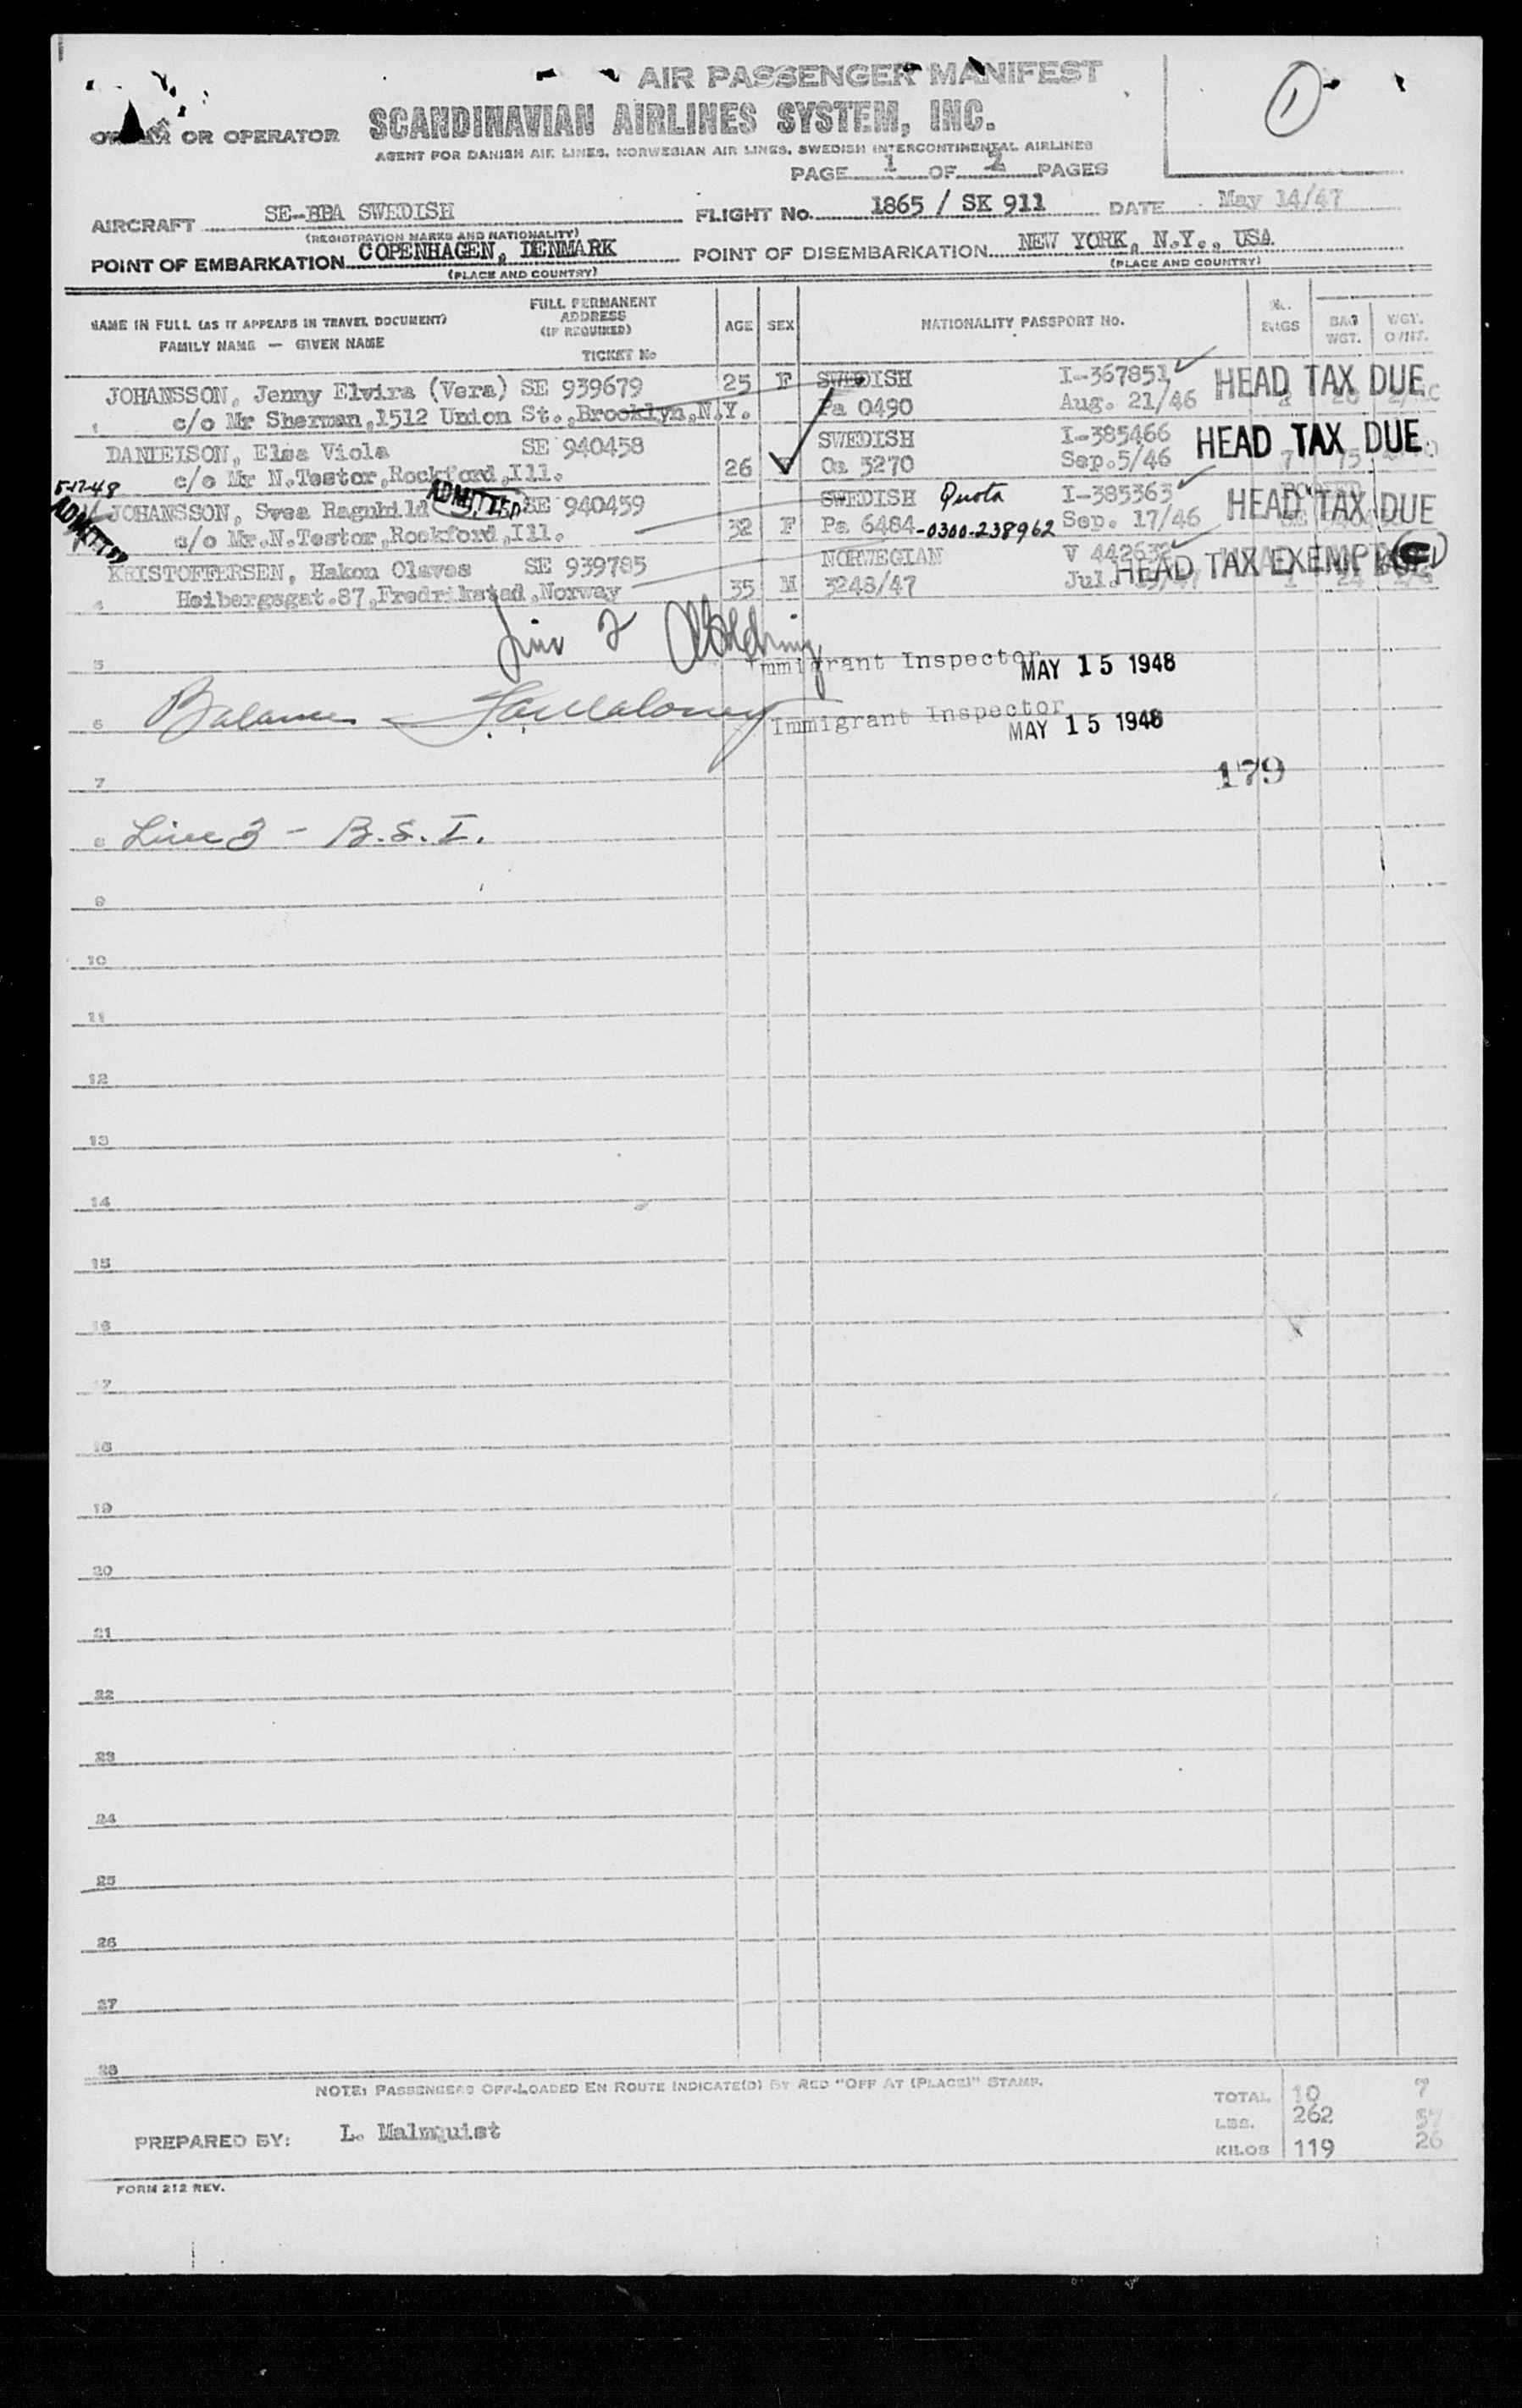 AIR PASSENGER MANIFEST
1
OR OPERATOR SCANDINAVIAN AIRLINES SYSTEM, INC.
AGENT FOR DANISH AIR LINES, NORWEGIAN AIR LINES, SWEDISH INTERCONTINENTAL AIRLINES
PAGE 1 OF 2 PAGES
AIRCRAFT SE-BBA SWEDISH FLIGHT No. 1865 / SK 911 DATE May 14/47
(REGISTRATION MARKS AND NATIONALITY)
POINT OF EMBARKATION COPENHAGEN, DENMARK POINT OF DISEMBARKATION NEW YORK, N.Y., USA
(PLACE AND COUNTRY) (PLACE AND COUNTRY)
NAME IN FULL (AS IT APPEARS IN TRAVEL DOCUMENT)
FAMILY NAME — GIVEN NAME
FULL PERMANENT
ADDRESS
(IF REQUIRED)
TICKET No
AGE SEX NATIONALITY PASSPORT No. BAG WGT. WGT.
JOHANSSON, Jenny Elvira (Vera) SE 939679 25 F SWEDISH I-367851 HEAD TAX DUE
1 c/o Mr Sherman,1512 Union St.,Brooklyn,N.Y. Pa 0490 Aug. 21/46
DANIELSON, Elsa Viola SE 940458 SWEDISH I-385466 HEAD TAX DUE.
c/o Mr N.Testor,Rockford,Ill. 26 Oa 5270 Sep.5/46 7 75
5-17-48 ADMITTED
JOHANSSON, Svea Ragnhild ADMITTED SE 940459 SWEDISH Quota I-385363 HEAD TAX DUE
c/o Mr.N.Testor,Rockford,Ill. 32 F Pa 6484-0300-238962 Sep. 17/46
KRISTOFFERSEN, Hakon Olaves SE 939785 NORWEGIAN V 442632 HEAD TAX EXEMPT
4 Heibergsgat.87,Fredrikstad,Norway 35 M 3248/47 Jul. 1 24
5 Immigrant Inspector MAY 15 1948
6 Balance Immigrant Inspector MAY 15 1948
7 179
8 Line 3 - B.S.I.
9
10
11
12
13
14
15
16
17
18
19
20
21
22
23
24
25
26
27
28
NOTE: PASSENGERS OFF-LOADED EN ROUTE INDICATE(D) BY RED "OFF AT (PLACE)" STAMP.
TOTAL 10 7
LBS. 262 57
PREPARED BY: L. Malmquist
KILOS 119 26
FORM 212 REV.